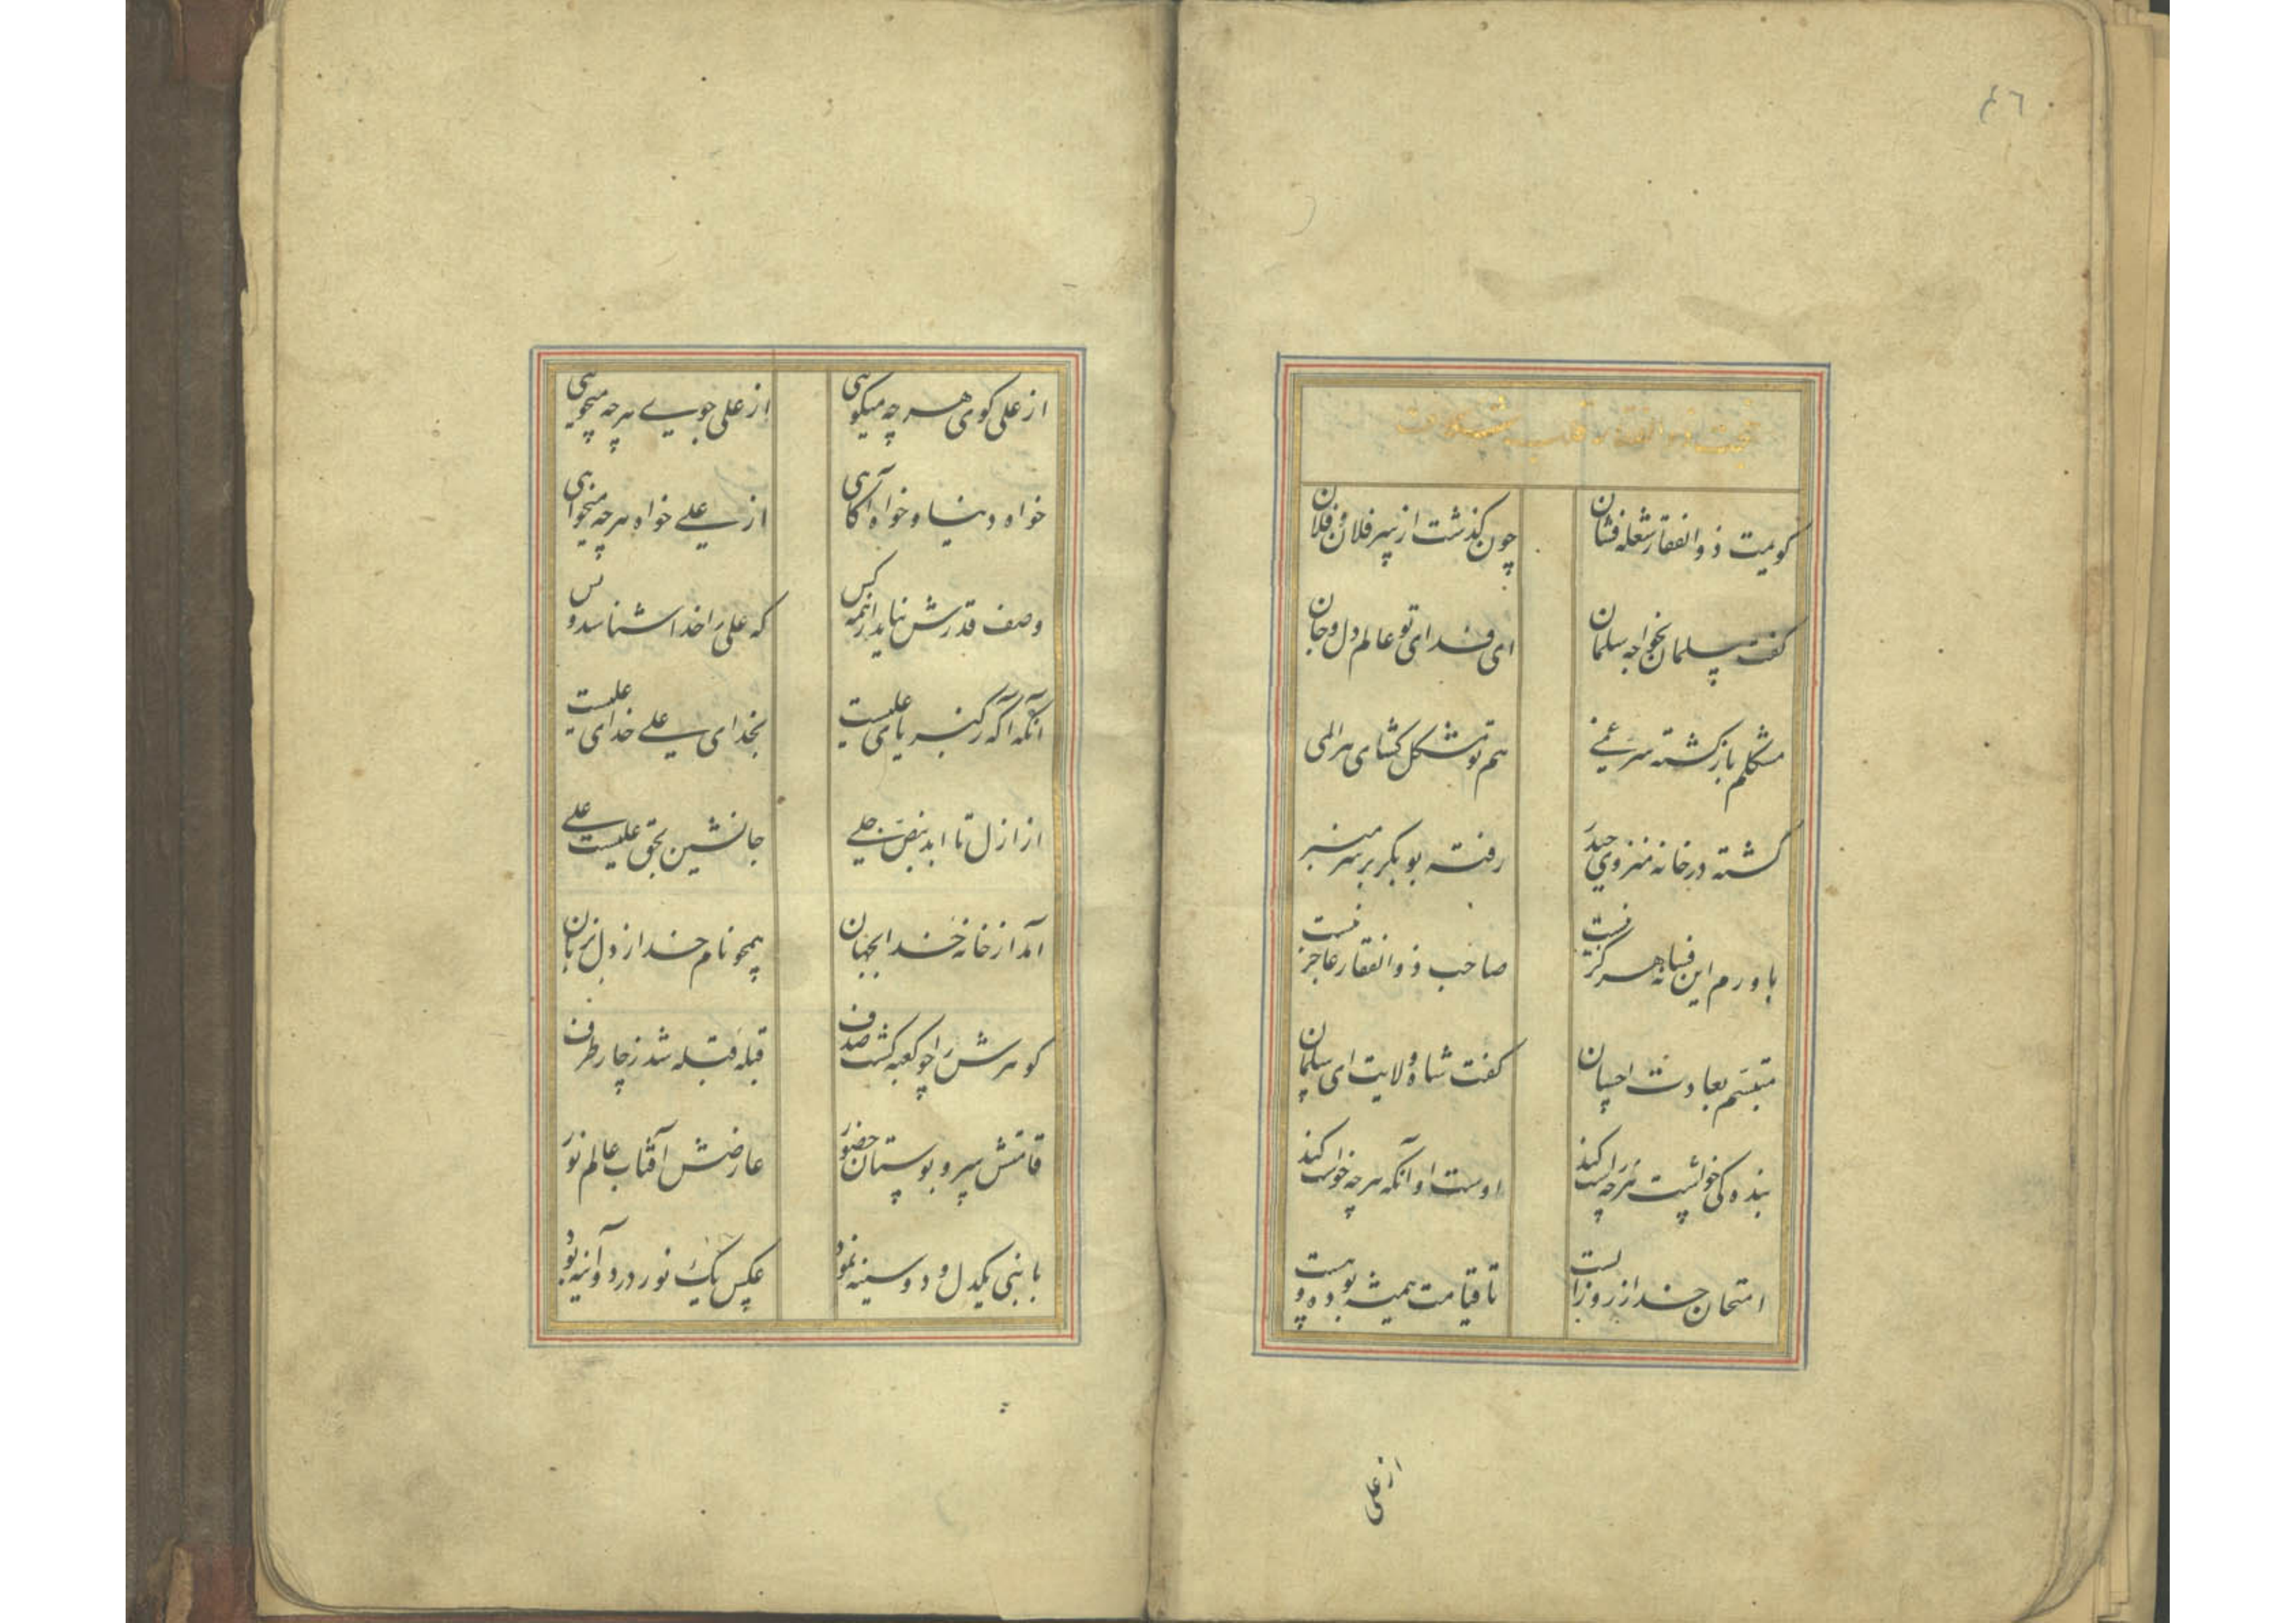 ٤٦
ذوالفقار
کویمت ذوالفقار شعله فشان چون کذشت از سر فلان و فلان
کفت سلمان بخواجه سلمان ای فدای تو عالم دل و جان
مشکلم باز کشته سر غمی هم تو مشکل کشای هر المی
کشته در خانه منزوی حیدر رفته بوبکر بر سر منبر
باورم این فسانه هرکز نیست صاحب ذوالفقار عاجز نیست
متبسم بعادت احسان کفت شاه ولایت ای سلمان
بنده کی خواست هرچه راست کند اوست او آنکه هرچه خواست کند
امتحان خدا ز روز الست تا قیامت همیشه بوده و هست
از علی
از علی کوی هرچه میکوهی از علی جوی هرچه میجویی
خواه دنیا و خواه آکاهی از علی خواه هرچه میخواهی
وصف قدرش نیاید از همه کس که علی را خدا شناسد و بس
آنکه آکه ز کبریای علیست بخدای علی خدای علیست
از ازل تا ابد بنص جلی جانشین بحق علیست علی
آمد از خانه خدا بجهان همچو نام خدا ز دل بزبان
کوهرش را چو کعبه کشت صدف قبله قبله شد ز چار طرف
قامتش سرو بوستان حضور عارضش آفتاب عالم نور
با نبی یکدل و دو سینه نمود عکس یک نور در دو آینه بود